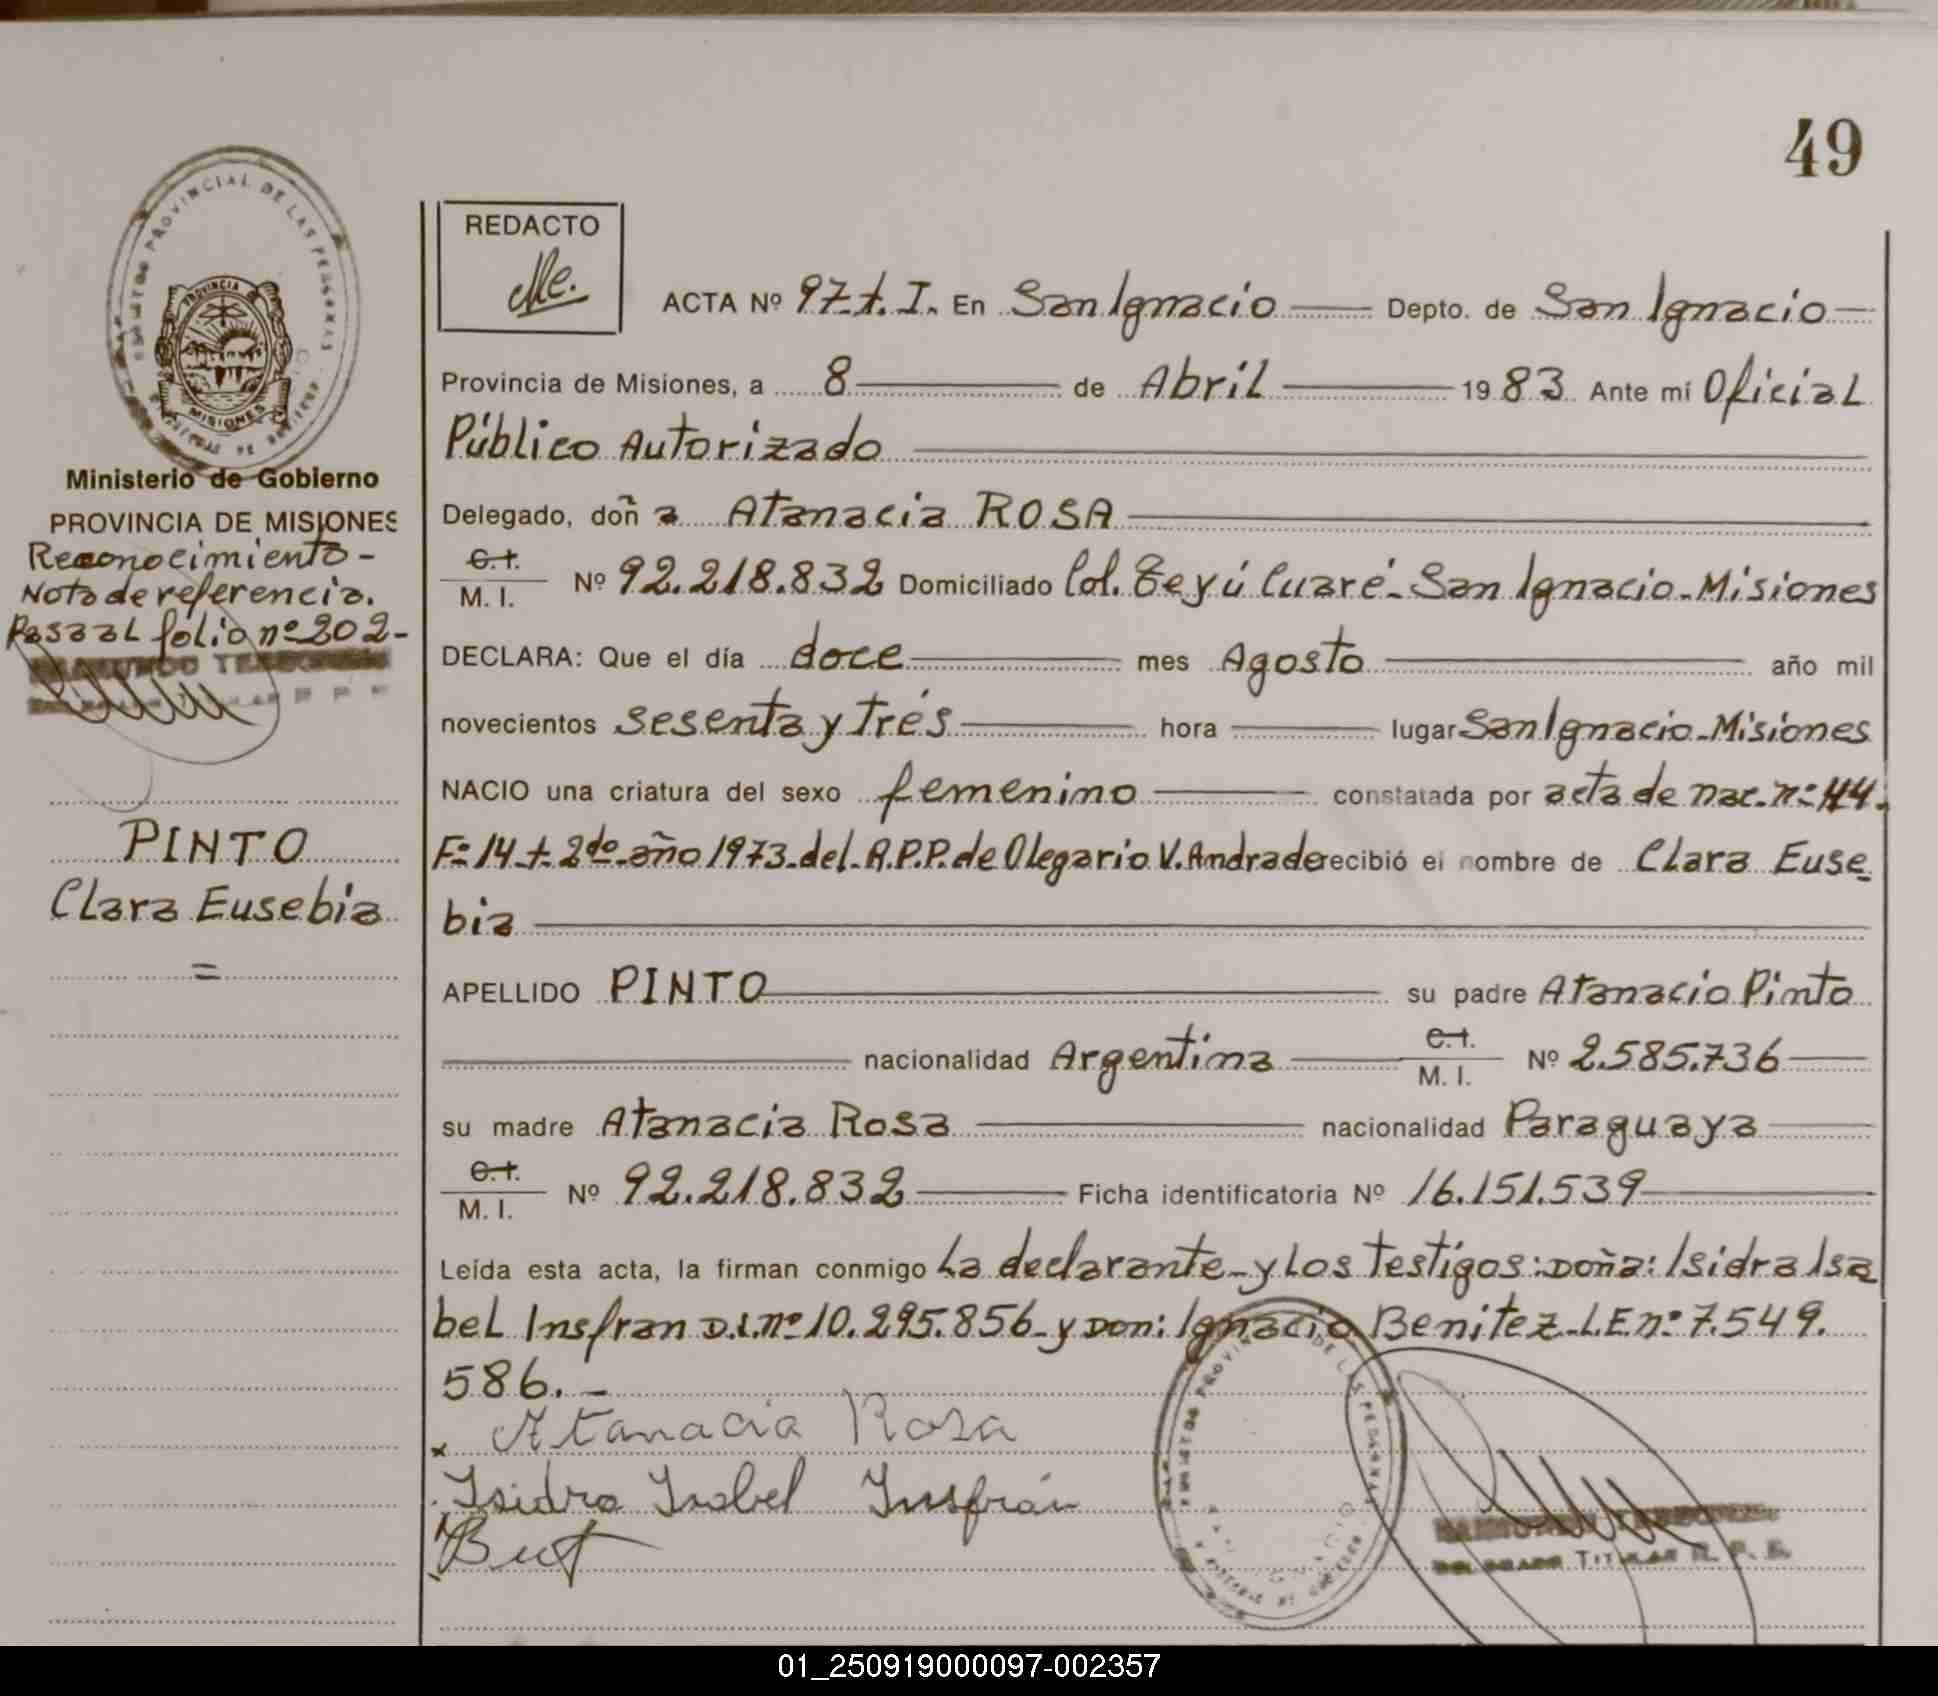 49
REGISTRO PROVINCIAL DE LAS PERSONAS
PROVINCIA
MISIONES
Ministerio de Gobierno
PROVINCIA DE MISIONES
Reconocimiento-
Nota de referencia.
Pasa al folio nº 202-
PINTO
Clara Eusebia
=
REDACTO
ACTA Nº 97-t. I. En San Ignacio Depto. de San Ignacio
Provincia de Misiones, a 8 de Abril 1983 Ante mí Oficial
Público Autorizado
Delegado, doña Atanacia ROSA
C.I.
M. I. Nº 92.218.832 Domiciliado Col. Teyú Cuaré-San Ignacio-Misiones
DECLARA: Que el día doce mes Agosto año mil
novecientos sesenta y trés hora lugar San Ignacio-Misiones
NACIO una criatura del sexo femenino constatada por acta de nac.nº 44.
Fº 14-t-2do-año 1973-del-A.P.P.de Olegario V.Andrade recibió el nombre de Clara Euse
bia
APELLIDO PINTO su padre Atanacio Pinto
nacionalidad Argentina C.I.
M. I. Nº 2.585.736
su madre Atanacia Rosa nacionalidad Paraguaya
C.I.
M. I. Nº 92.218.832 Ficha identificatoria Nº 16.151.539
Leída esta acta, la firman conmigo La declarante-y Los testigos: Doña: Isidra Isa
bel Insfran D.I.nº 10.295.856-y Don: Ignacio Benitez-L.E.nº 7.549.
586.-
x Atanacia Rosa
Isidra Isabel Insfrán
REGISTRO PROVINCIAL DE LAS PERSONAS
DELEGADO TITULAR R. P. P.
01_250919000097-002357